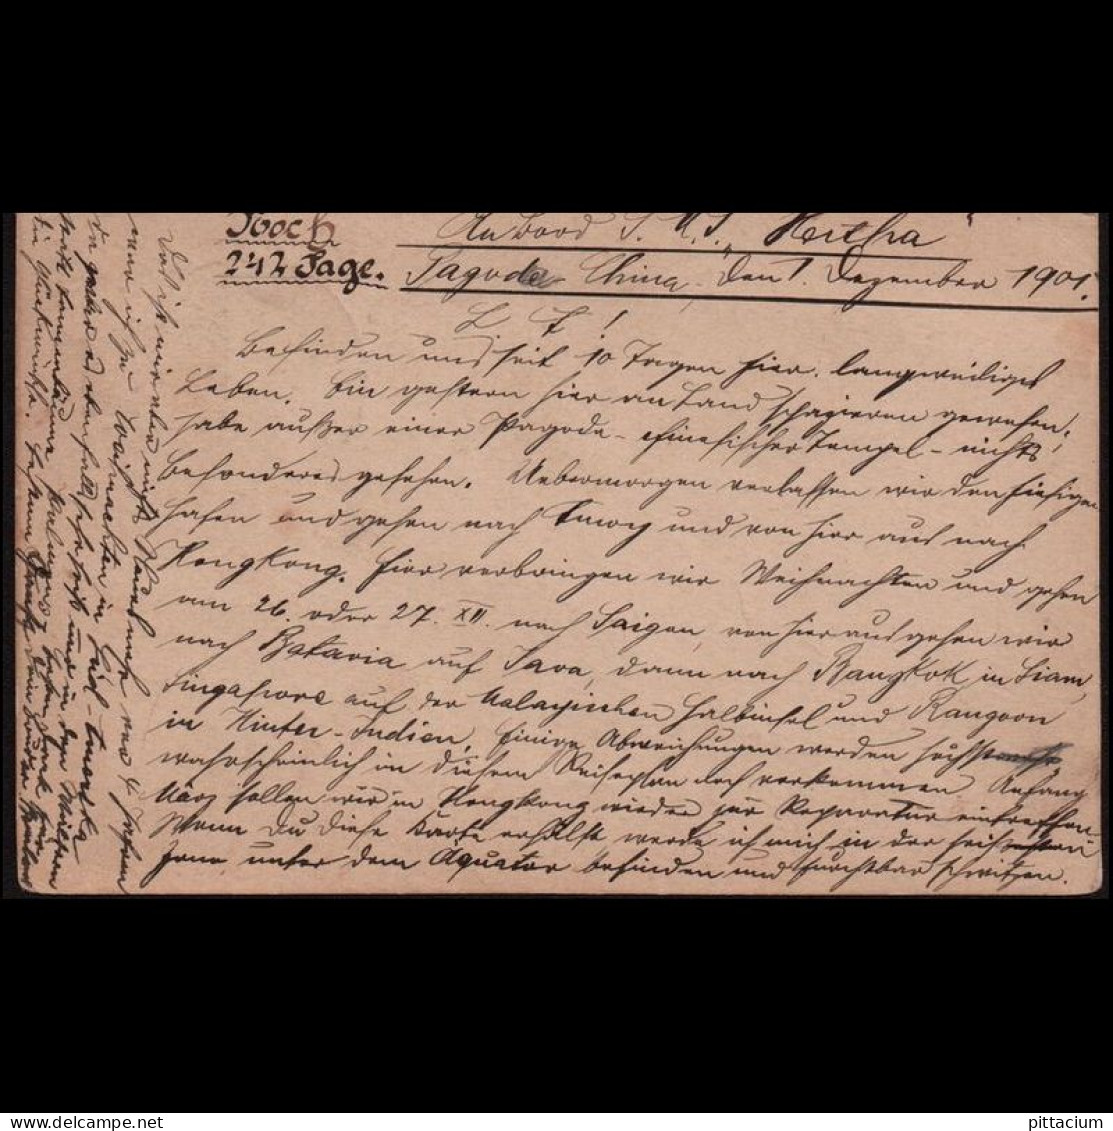 Noch
242 Tage.
An Bord S. M. S. „Hertha“
Pagode China, den 1. Dezember 1901.
L. F.!
Befinden uns seit 10 Tagen hier. langweiliges
Leben. Bin gestern hier an Land spazieren gewesen,
habe außer einer Pagode – chinesischer Tempel – nichts
besonderes gesehen. Uebermorgen verlassen wir den hiesigen
Hafen und gehen nach Amoy und von hier aus nach
Hongkong. Hier verbringen wir Weihnachten und gehen
am 26. oder 27. XII. nach Saigon, von hier aus gehen wir
nach Batavia auf Java, dann nach Bangkok in Siam,
Singapore auf der Malayischen Halbinsel und Rangoon
in Hinter-Indien. Einige Abweichungen werden höchst
wahrscheinlich in diesem Reiseplan noch vorkommen. Anfang
März sollen wir in Hongkong wieder zur Reparatur eintreffen.
Wenn Du diese Karte erhälst, werde ich mich in der heißesten
Zone unter dem Äquator befinden und furchtbar schwitzen.
Daß ich wieder nichts
wenn ich zu Weihnachten in Süd-Amerika
Du
Tannenbäume
Glückwünsche. Dein Bruder
pittacium